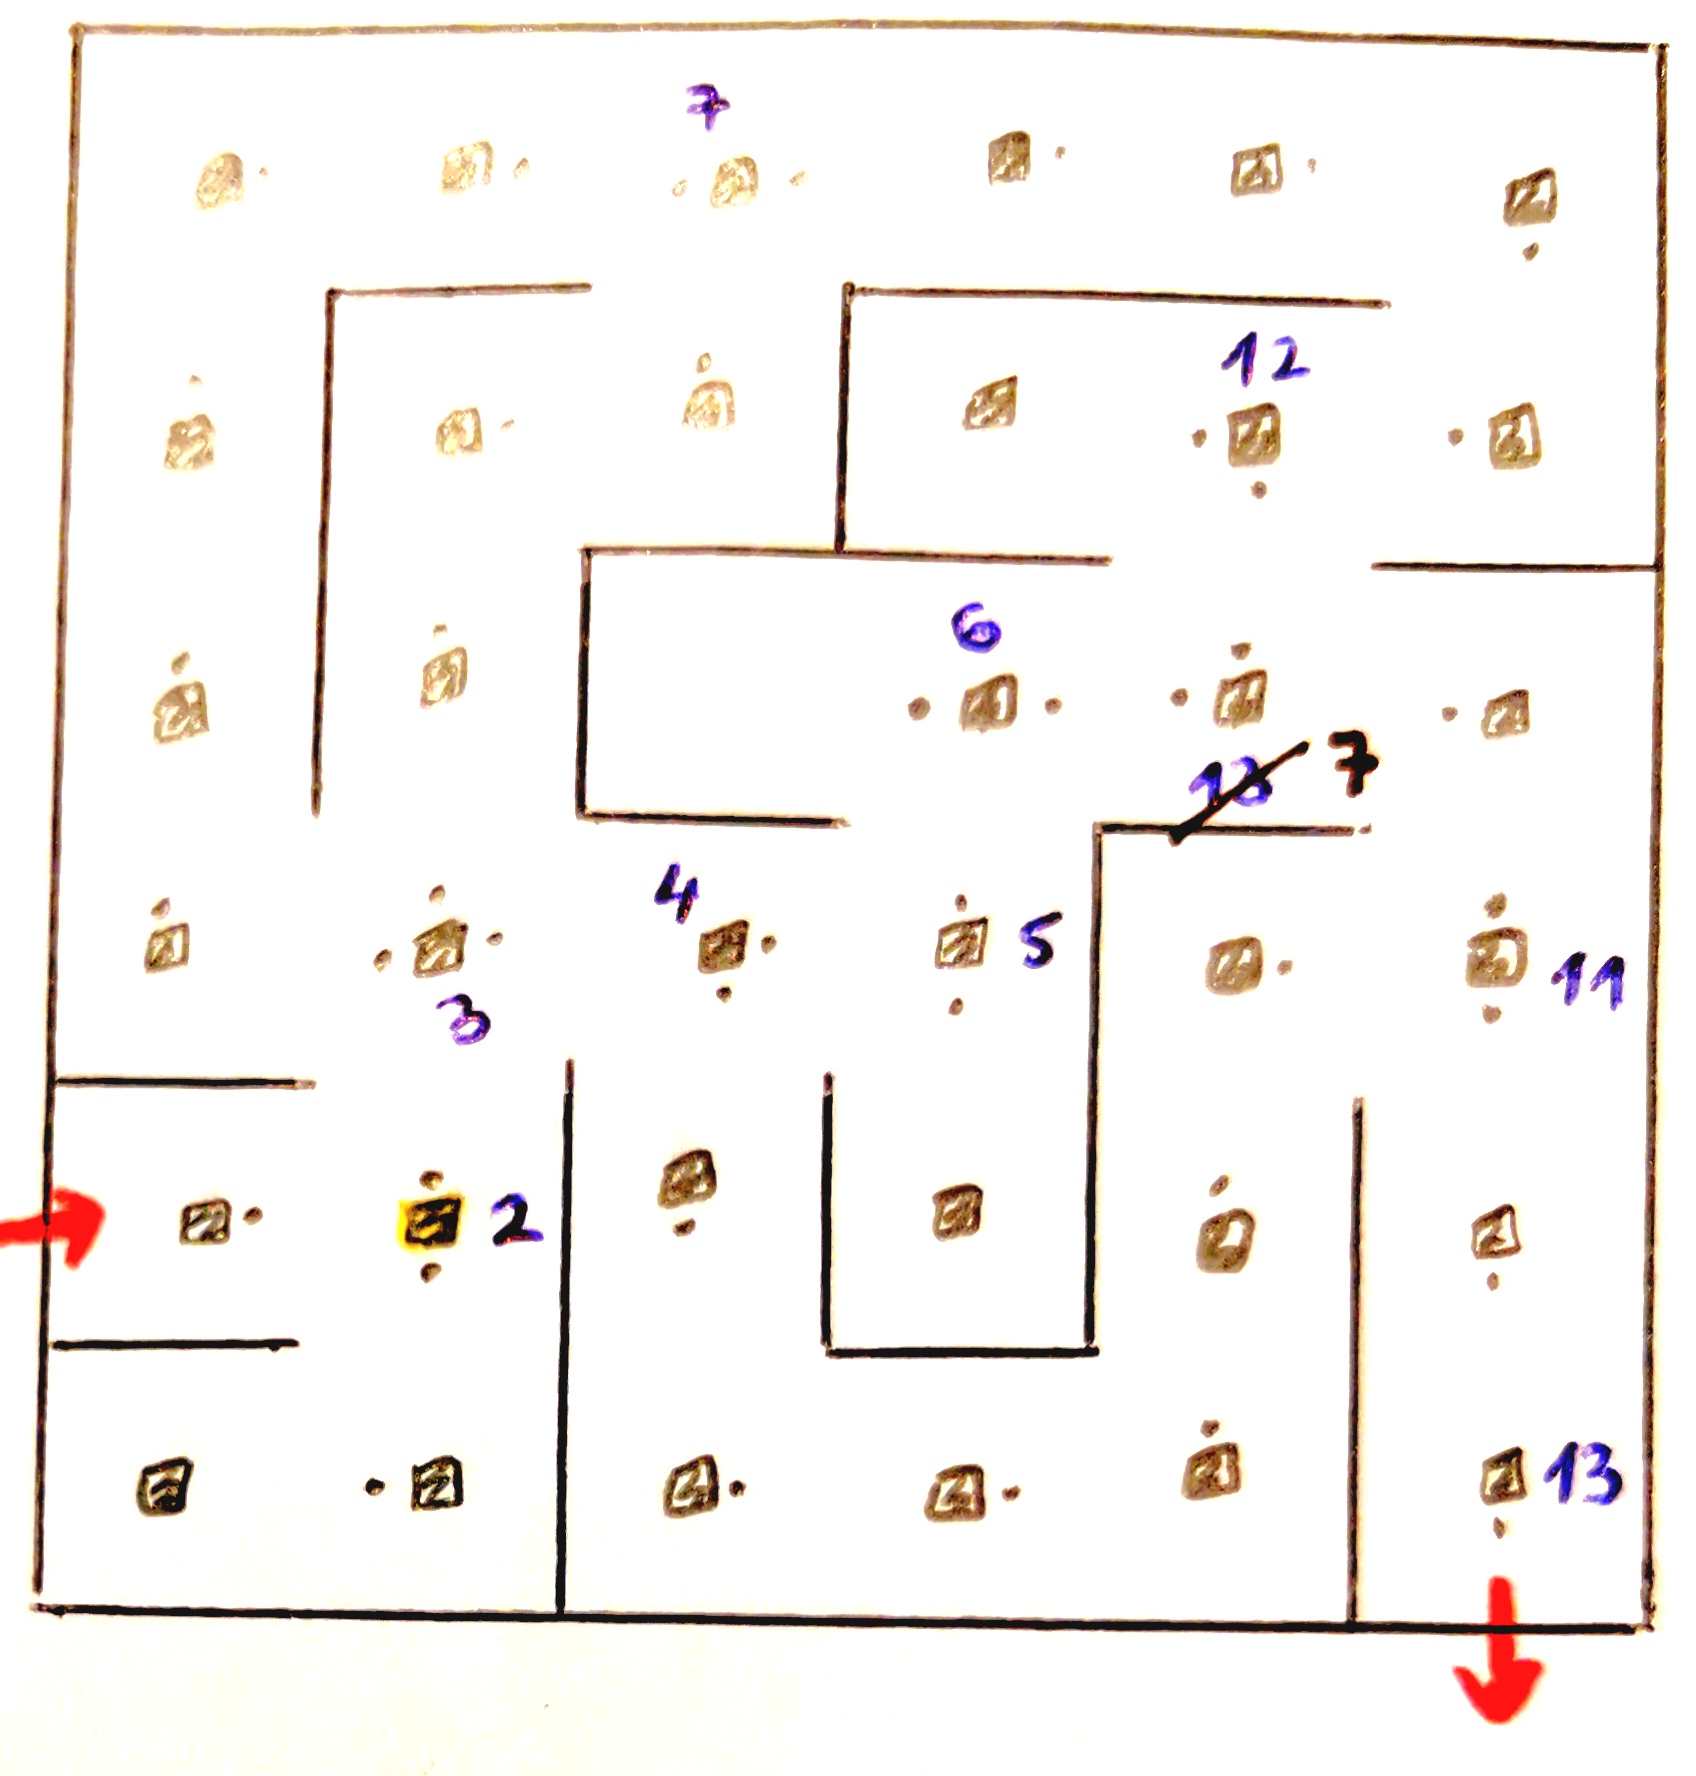 7
12
6
13 7
4
5
3
11
2
13